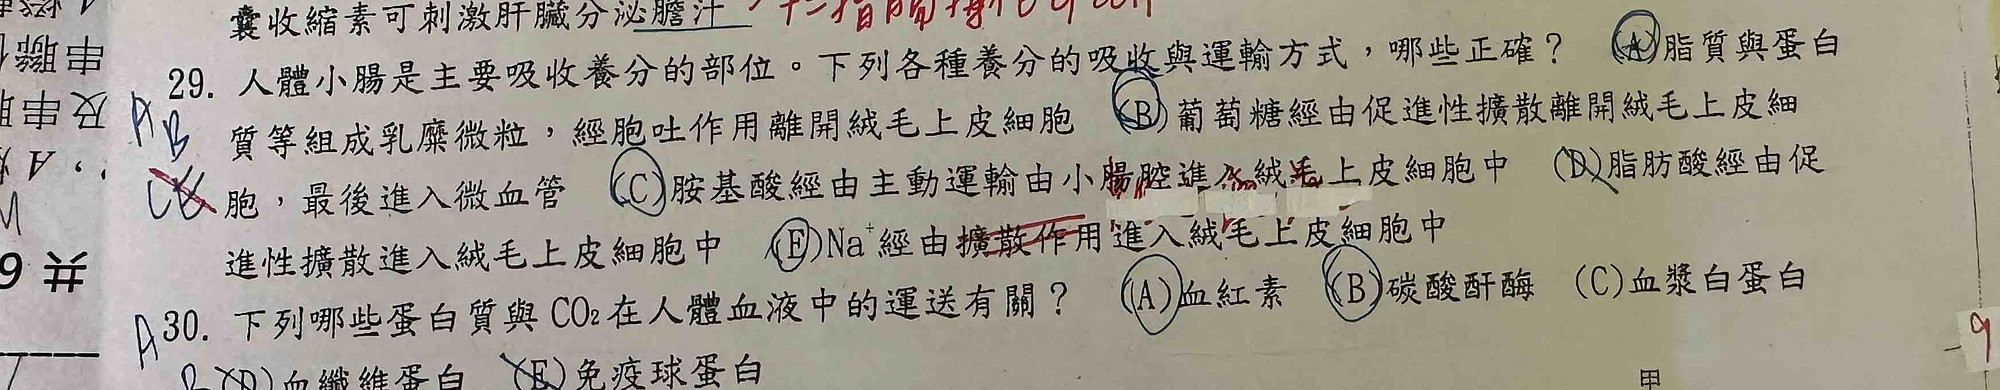 囊收縮素可刺激肝臟分泌膽汁
29. 人體小腸是主要吸收養分的部位。下列各種養分的吸收與運輸方式，哪些正確？ (A)脂質與蛋白
質等組成乳糜微粒，經胞吐作用離開絨毛上皮細胞 (B)葡萄糖經由促進性擴散離開絨毛上皮細
胞，最後進入微血管 (C)胺基酸經由主動運輸由小腸腔進入絨毛上皮細胞中 (D)脂肪酸經由促
進性擴散進入絨毛上皮細胞中 (E)Na⁺經由擴散作用進入絨毛上皮細胞中
30. 下列哪些蛋白質與CO₂在人體血液中的運送有關？ (A)血紅素 (B)碳酸酐酶 (C)血漿白蛋白
(D)血纖維蛋白 (E)免疫球蛋白
甲
A
B
A
9
串聯
及串聯
共 6